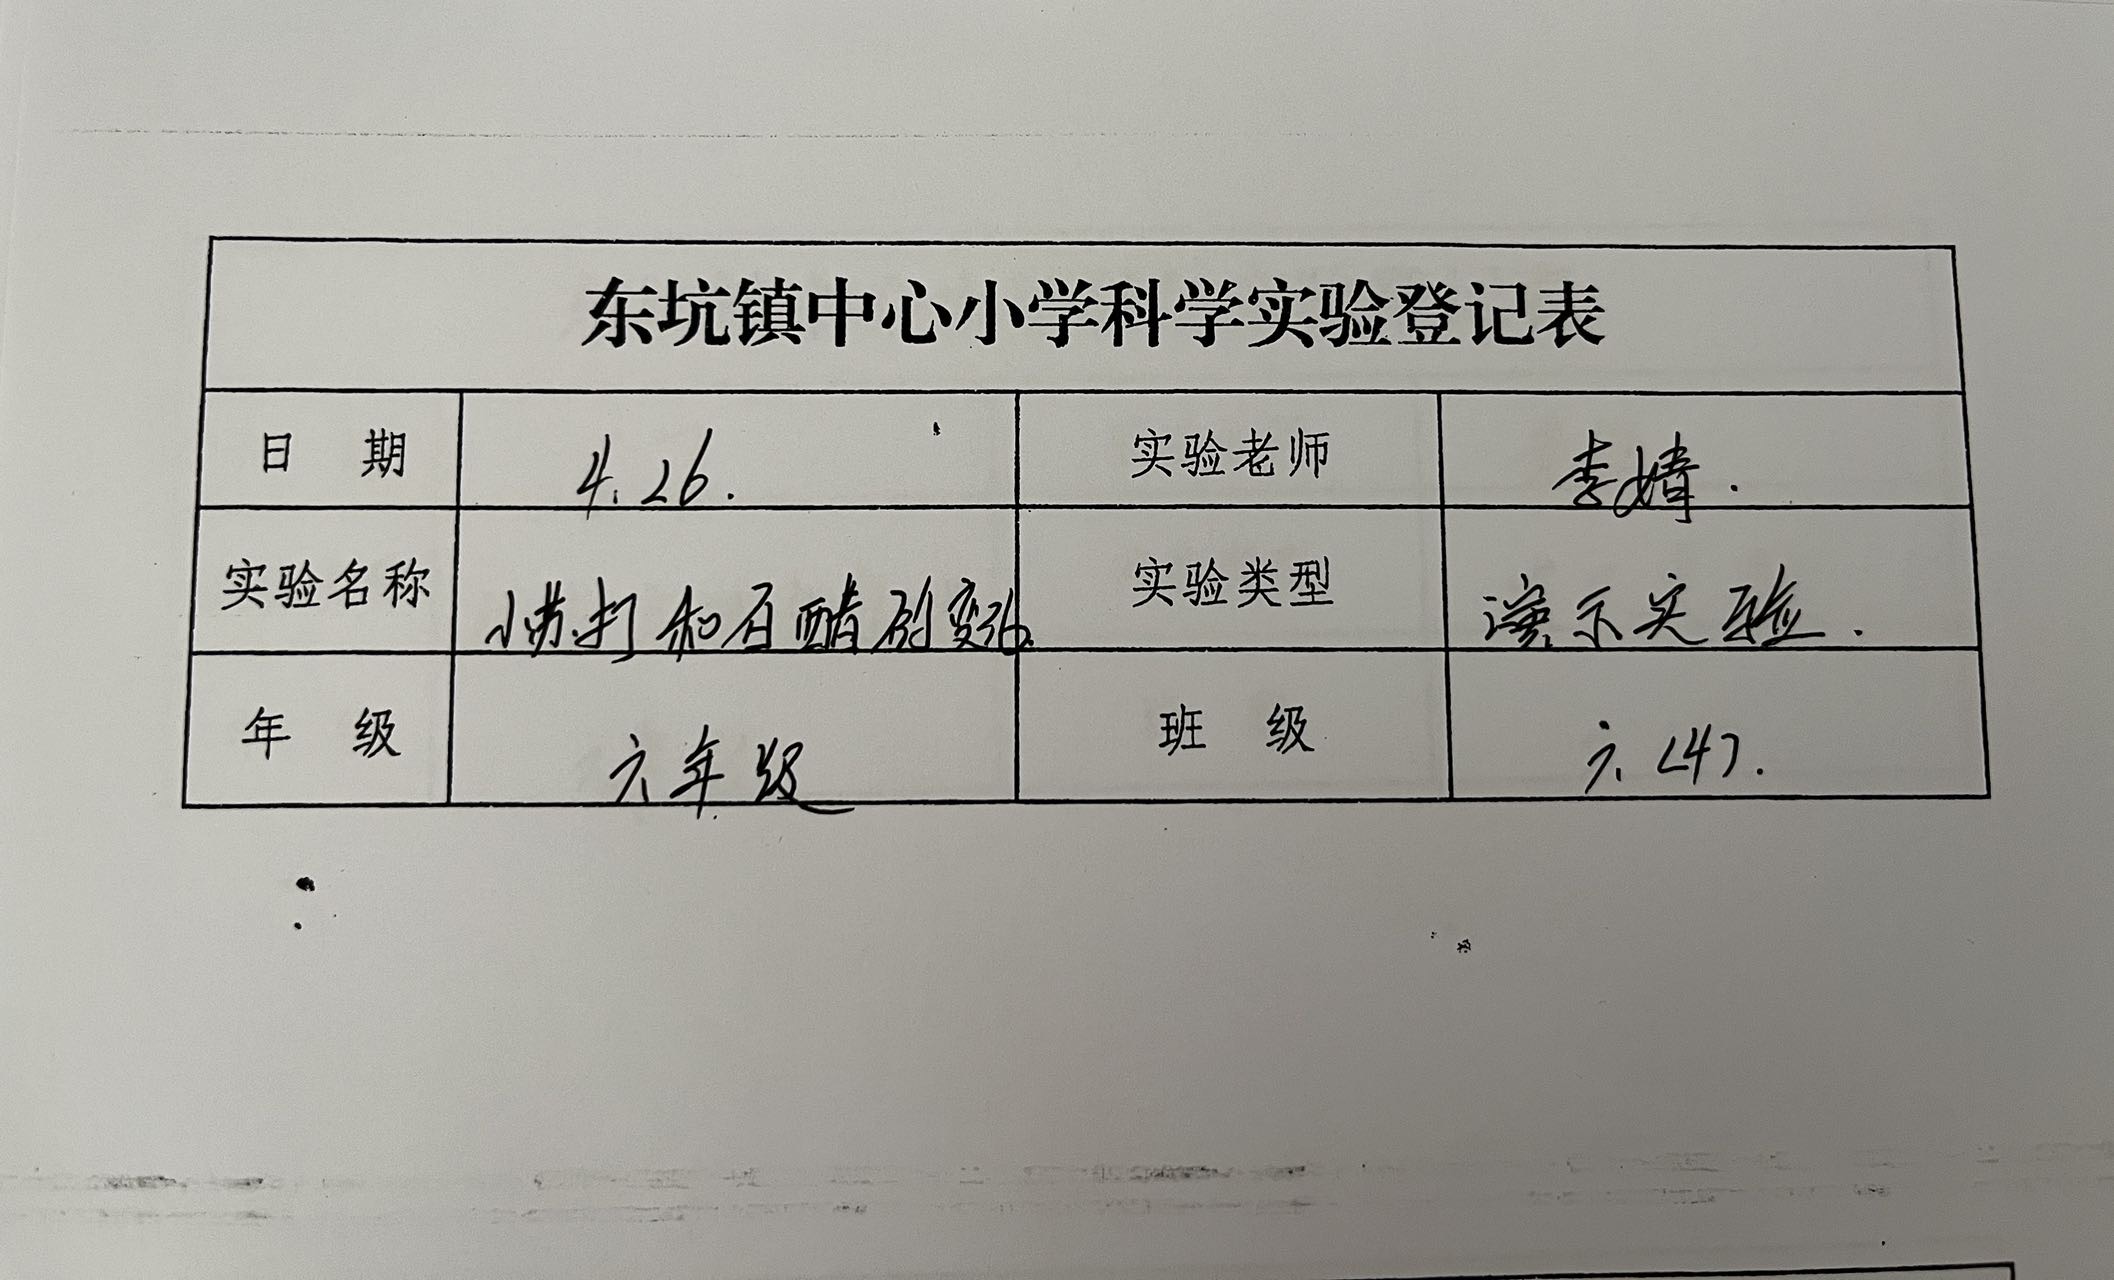 东坑镇中心小学科学实验登记表
日 期 4.26. 实验老师 李婧.
实验名称 小苏打和白醋的变化 实验类型 演示实验.
年 级 六年级 班 级 六(4).